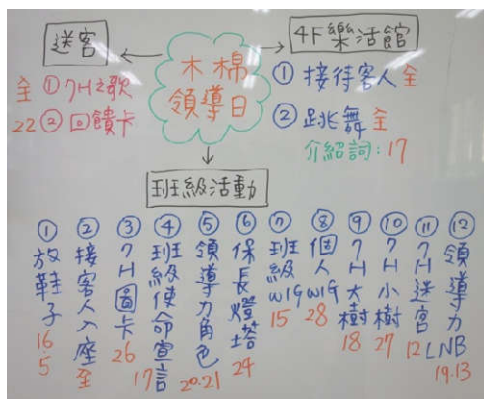 木棉
領導日
送客
全 ① 7H之歌
22 ② 回饋卡
4F樂活館
① 接待客人 全
② 跳舞 全
介紹詞:17
班級活動
① 放鞋子 16.5
② 接客人入座 全
③ 7H圖卡 26
④ 班級使命宣言 17
⑤ 領導力角色 20.21
⑥ 保長燈塔 24
⑦ 班級WIG 15
⑧ 個人WIG 28
⑨ 7H大樹 18
⑩ 7H小樹 27
⑪ 7H迷宮 12
⑫ 領導力LNB 19.13